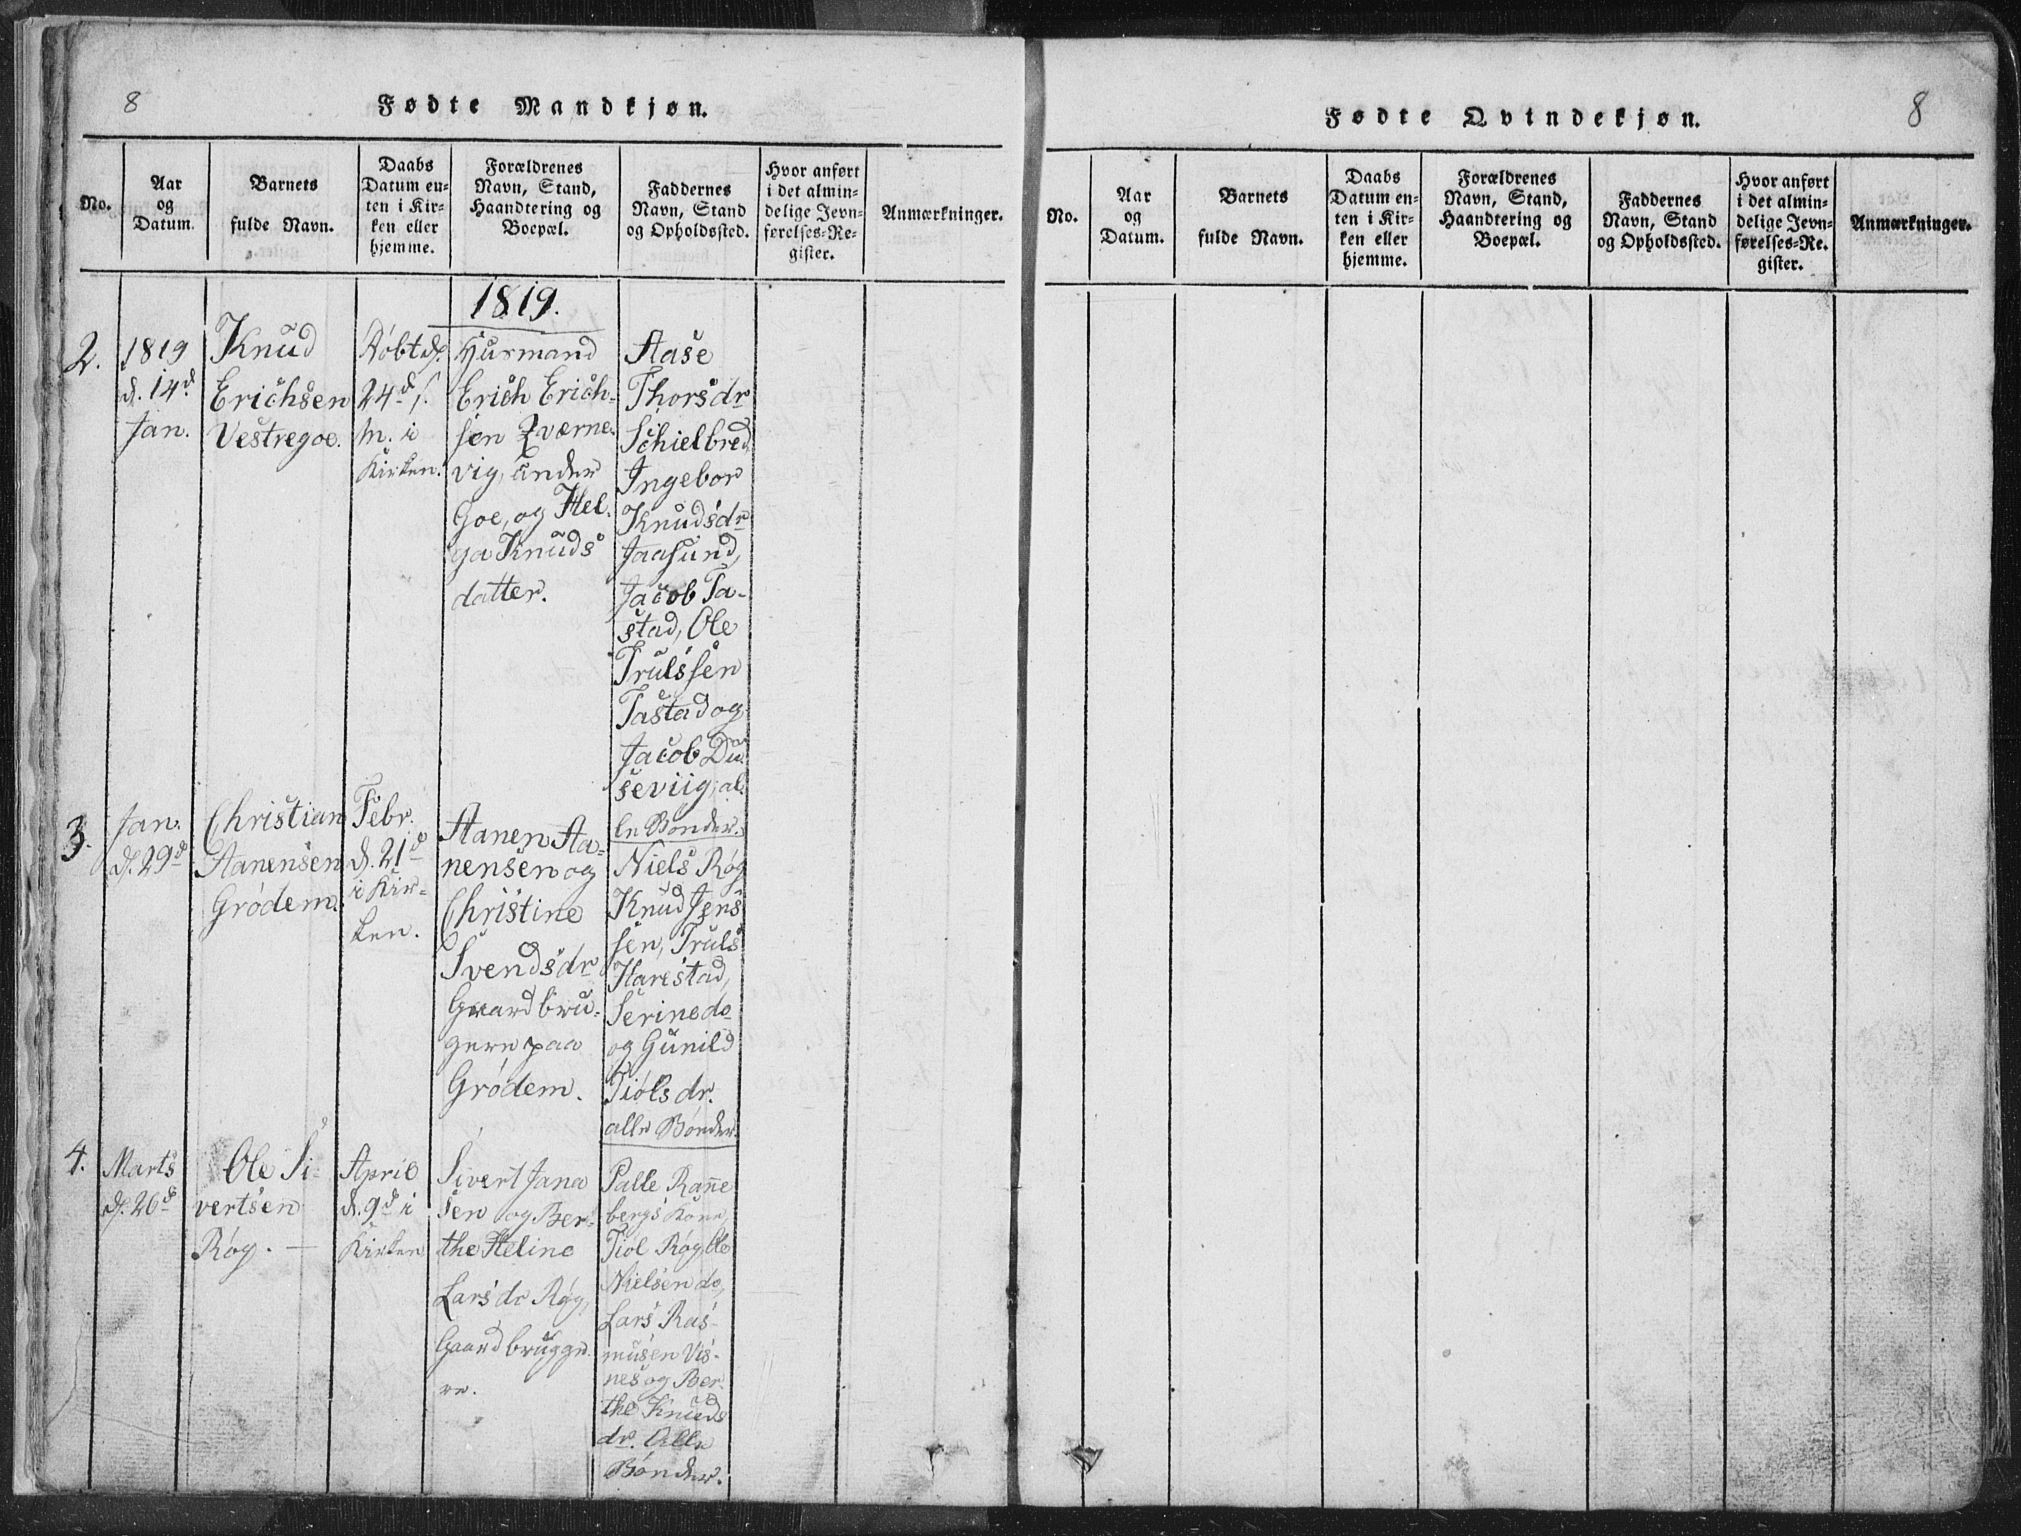 8
Fødte Mandkjøn.
No.
Aar
og
Datum.
Barnets
fulde Navn.
Daabs
Datum en-
ten i Kir-
ken eller
hjemme.
Forældrenes
Navn, Stand,
Haandtering og
Boepæl.
Faddernes
Navn, Stand
og Opholdssted.
Hvor anført
i det almin-
delige Jevn-
førelses-Re-
gister.
Anmærkninger.
1819.
2.
1819
d. 14d
Jan.
Knud
Erichsen
Vestregoe.
Døbt d.
24d s.
m. i
Kirken.
Huusmand
Erich Erich-
sen Qværne-
vig, under
Goe, og Hel-
ga Knuds
datter.
Aase
Thorsdr
Schielbred,
Ingebor
Knudsdr
Jaasund,
Jacob Ta-
stad, Ole
Trulssen
Tastad og
Jacob Du-
seviig, al-
le Bønder.
3.
Jan.
d. 29d
Christian
Aanensen
Grødem.
Febr.
d. 21d
i Kir-
ken.
Aanen Aa-
nensen og
Christine
Svendsdr
Gaardbru-
gere paa
Grødem.
Niels Røg
Knud Jens
sen, Truls
Harestad,
Serine do
og Gunild
Tiølsdr.
alle Bønder.
4.
Marts
d. 26d
Ole Si-
vertsen
Røg. —
April
d. 9d i
Kirken
Sivert Jana
sen og Ber-
the Heline
Larsdr Røg,
Gaardbrugge-
re.
Palle Ranne
bergs Kone,
Tiøl Røg, Ole
Nielsen do,
Lars Ras-
musen Vis-
nes og Ber-
the Knuds
dr. Alle
Bønder.
Fødte Qvindekjøn.
8
No.
Aar
og
Datum.
Barnets
fulde Navn.
Daabs
Datum en-
ten i Kir-
ken eller
hjemme.
Forældrenes
Navn, Stand,
Haandtering og
Boepæl.
Faddernes
Navn, Stand
og Opholdssted.
Hvor anført
i det almin-
delige Jevn-
førelses-Re-
gister.
Anmærkninger.